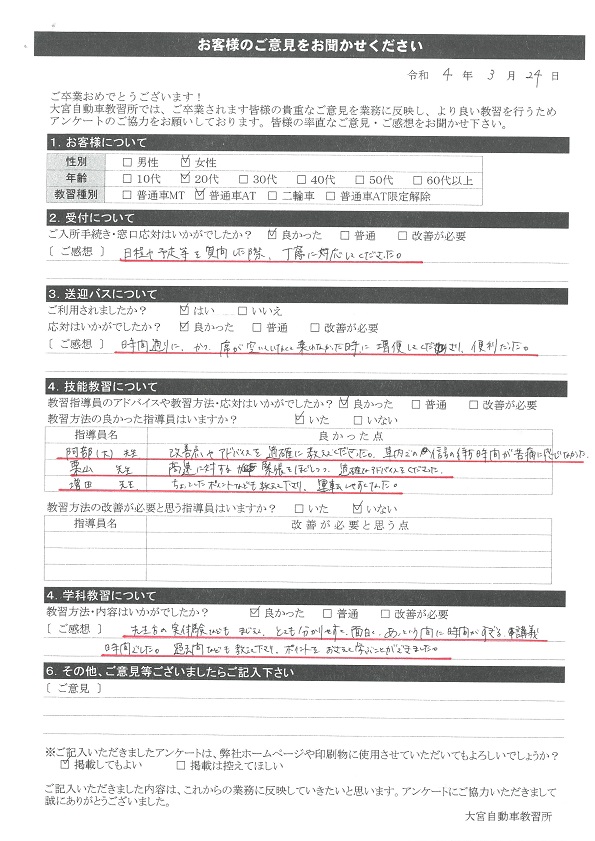 お客様のご意見をお聞かせください
令和 4 年 3 月 24 日
ご卒業おめでとうございます！
大宮自動車教習所では、ご卒業されます皆様の貴重なご意見を業務に反映し、より良い教習を行うため
アンケートのご協力をお願いしております。皆様の率直なご意見・ご感想をお聞かせ下さい。
1. お客様について
性別 □ 男性 ☑ 女性
年齢 □ 10代 ☑ 20代 □ 30代 □ 40代 □ 50代 □ 60代以上
教習種別 □ 普通車MT ☑ 普通車AT □ 二輪車 □ 普通車AT限定解除
2. 受付について
ご入所手続き・窓口応対はいかがでしたか？ ☑ 良かった □ 普通 □ 改善が必要
〔 ご感想 〕 日程や予定等を質問した際、丁寧に対応してくださった。
3. 送迎バスについて
ご利用されましたか？ ☑ はい □ いいえ
応対はいかがでしたか？ ☑ 良かった □ 普通 □ 改善が必要
〔 ご感想 〕 時間通りに、かつ、席が空いていなくて乗れなかった時に増便してくださり、便利だった。
4. 技能教習について
教習指導員のアドバイスや教習方法・応対はいかがでしたか？ ☑ 良かった □ 普通 □ 改善が必要
教習方法の良かった指導員はいますか？ ☑ いた □ いない
指導員名 良かった点
阿部(大) 先生 改善点やアドバイスを適確に教えてくださった。車内での信号の待ち時間が苦痛に感じなかった。
栗山 先生 高速に対する緊張をほぐしつつ、適確なアドバイスをくださった。
増田 先生 ちょっとしたポイントなども教えて下さり、運転しやすくなった。
教習方法の改善が必要と思う指導員はいますか？ □ いた ☑ いない
指導員名 改善が必要と思う点
4. 学科教習について
教習方法・内容はいかがでしたか？ ☑ 良かった □ 普通 □ 改善が必要
〔 ご感想 〕 先生方の実体験なども まじえ、とても分かりやすく、面白く、あっという間に時間がすぎる 講義
時間でした。過去問なども教えて下さり、ポイントをおさえて学ぶことができました。
6. その他、ご意見等ございましたらご記入下さい
〔 ご意見 〕
※ご記入いただきましたアンケートは、弊社ホームページや印刷物に使用させていただいてもよろしいでしょうか？
☑ 掲載してもよい □ 掲載は控えてほしい
ご記入いただきました内容は、これからの業務に反映していきたいと思います。アンケートにご協力いただきまして
誠にありがとうございました。
大宮自動車教習所